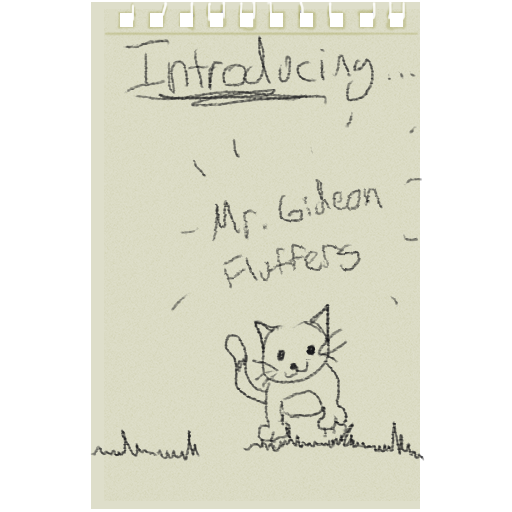 Introducing...
Mr. Gideon
Fluffers